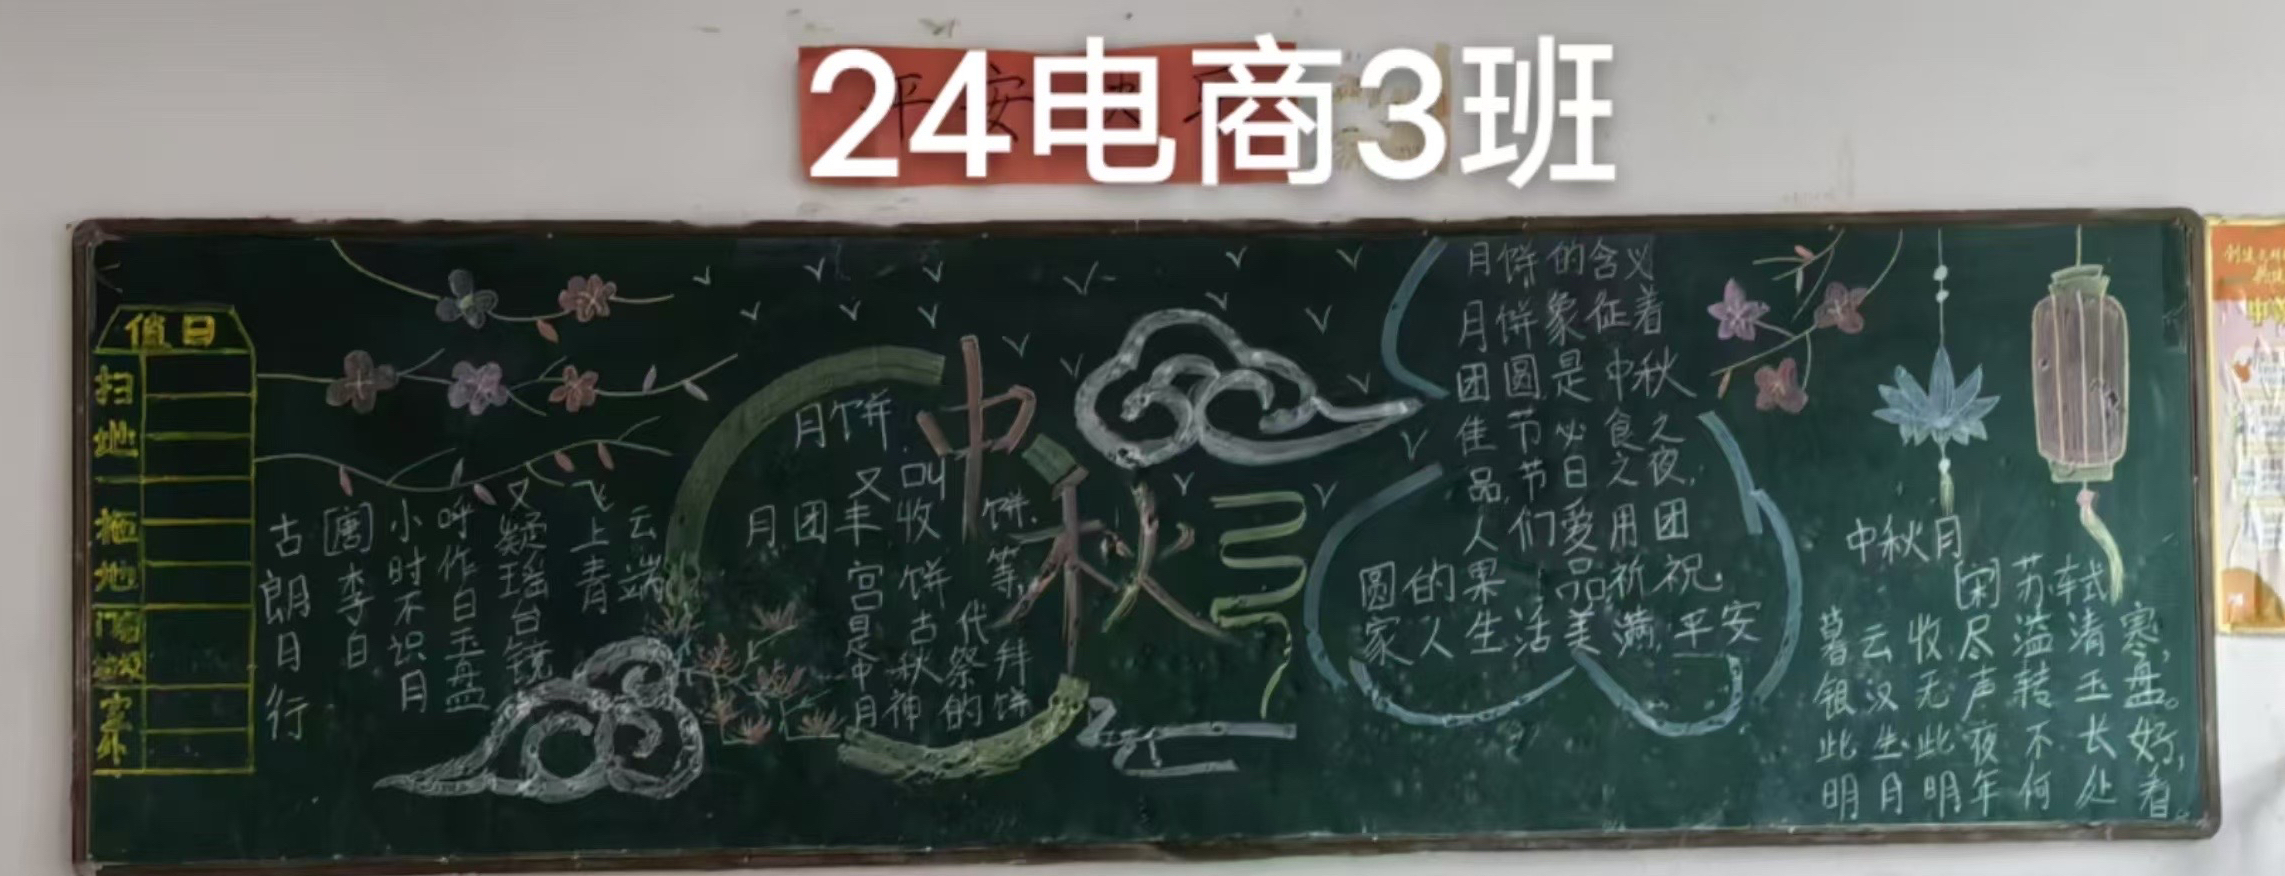 24电商3班
平安
值日
扫地
拖地
门窗
垃圾
室外
古朗月行
[唐]李白
小时不识月
呼作白玉盘
又疑瑶台镜
飞上青云端
中秋
月饼
月饼.又叫
月团丰收饼.
宫饼等,
是古代
中秋祭拜
月神的饼
月饼的含义
月饼象征着
团圆.是中秋
佳节必食之
品.节日之夜,
人们爱用团
圆的果品祈祝,
家人生活美满,平安
中秋月
苏轼
暮云收尽溢清寒,
银汉无声转玉盘。
此生此夜不长好,
明月明年何处看。